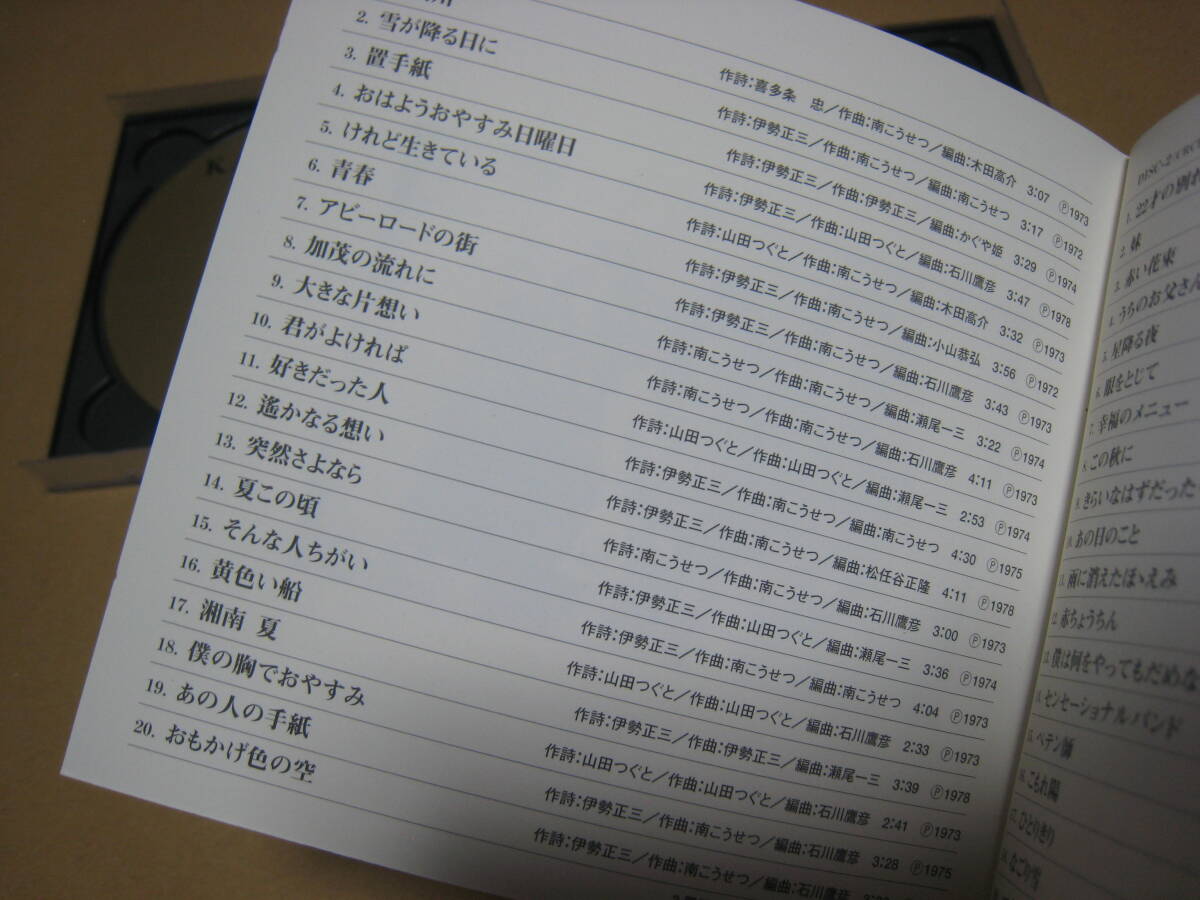 2. 雪が降る日に
3. 置手紙
4. おはようおやすみ日曜日
5. けれど生きている
6. 青春
7. アビーロードの街
8. 加茂の流れに
9. 大きな片想い
10. 君がよければ
11. 好きだった人
12. 遙かなる想い
13. 突然さよなら
14. 夏この頃
15. そんな人ちがい
16. 黄色い船
17. 湘南 夏
18. 僕の胸でおやすみ
19. あの人の手紙
20. おもかげ色の空
作詩:喜多条 忠/作曲:南こうせつ/編曲:木田高介 3:07 Ⓟ1973
作詩:伊勢正三/作曲:南こうせつ/編曲:南こうせつ 3:17 Ⓟ1972
作詩:伊勢正三/作曲:伊勢正三/編曲:かぐや姫 3:29 Ⓟ1974
作詩:伊勢正三/作曲:山田つぐと/編曲:石川鷹彦 3:47 Ⓟ1978
作詩:山田つぐと/作曲:南こうせつ/編曲:木田高介 3:32 Ⓟ1973
作詩:伊勢正三/作曲:南こうせつ/編曲:小山恭弘 3:56 Ⓟ1972
作詩:伊勢正三/作曲:南こうせつ/編曲:石川鷹彦 3:43 Ⓟ1973
作詩:南こうせつ/作曲:南こうせつ/編曲:瀬尾一三 3:22 Ⓟ1974
作詩:南こうせつ/作曲:南こうせつ/編曲:石川鷹彦 4:11 Ⓟ1973
作詩:山田つぐと/作曲:山田つぐと/編曲:瀬尾一三 2:53 Ⓟ1974
作詩:伊勢正三/作曲:南こうせつ/編曲:南こうせつ 4:30 Ⓟ1975
作詩:伊勢正三/作曲:南こうせつ/編曲:松任谷正隆 4:11 Ⓟ1978
作詩:南こうせつ/作曲:南こうせつ/編曲:石川鷹彦 3:00 Ⓟ1973
作詩:伊勢正三/作曲:山田つぐと/編曲:瀬尾一三 3:36 Ⓟ1974
作詩:伊勢正三/作曲:南こうせつ/編曲:南こうせつ 4:04 Ⓟ1973
作詩:山田つぐと/作曲:山田つぐと/編曲:石川鷹彦 2:33 Ⓟ1973
作詩:伊勢正三/作曲:伊勢正三/編曲:瀬尾一三 3:39 Ⓟ1978
作詩:山田つぐと/作曲:山田つぐと/編曲:石川鷹彦 2:41 Ⓟ1973
作詩:伊勢正三/作曲:南こうせつ/編曲:石川鷹彦 3:28 Ⓟ1975
作詩:伊勢正三/作曲:南こうせつ/編曲:石川鷹彦
DISC-2
1. 22才の別れ
2. 妹
3. 赤い花束
4. うちのお父さん
5. 星降る夜
6. 眼をとじて
7. 幸福のメニュー
8. この秋に
9. きらいなはずだった
10. あの日のこと
11. 雨に消えたほゝえみ
12. 赤ちょうちん
13. 僕は何をやってもだめな
14. センセーショナルバンド
15. ペテン師
16. こもれ陽
17. ひとりきり
18. なごり雪
K